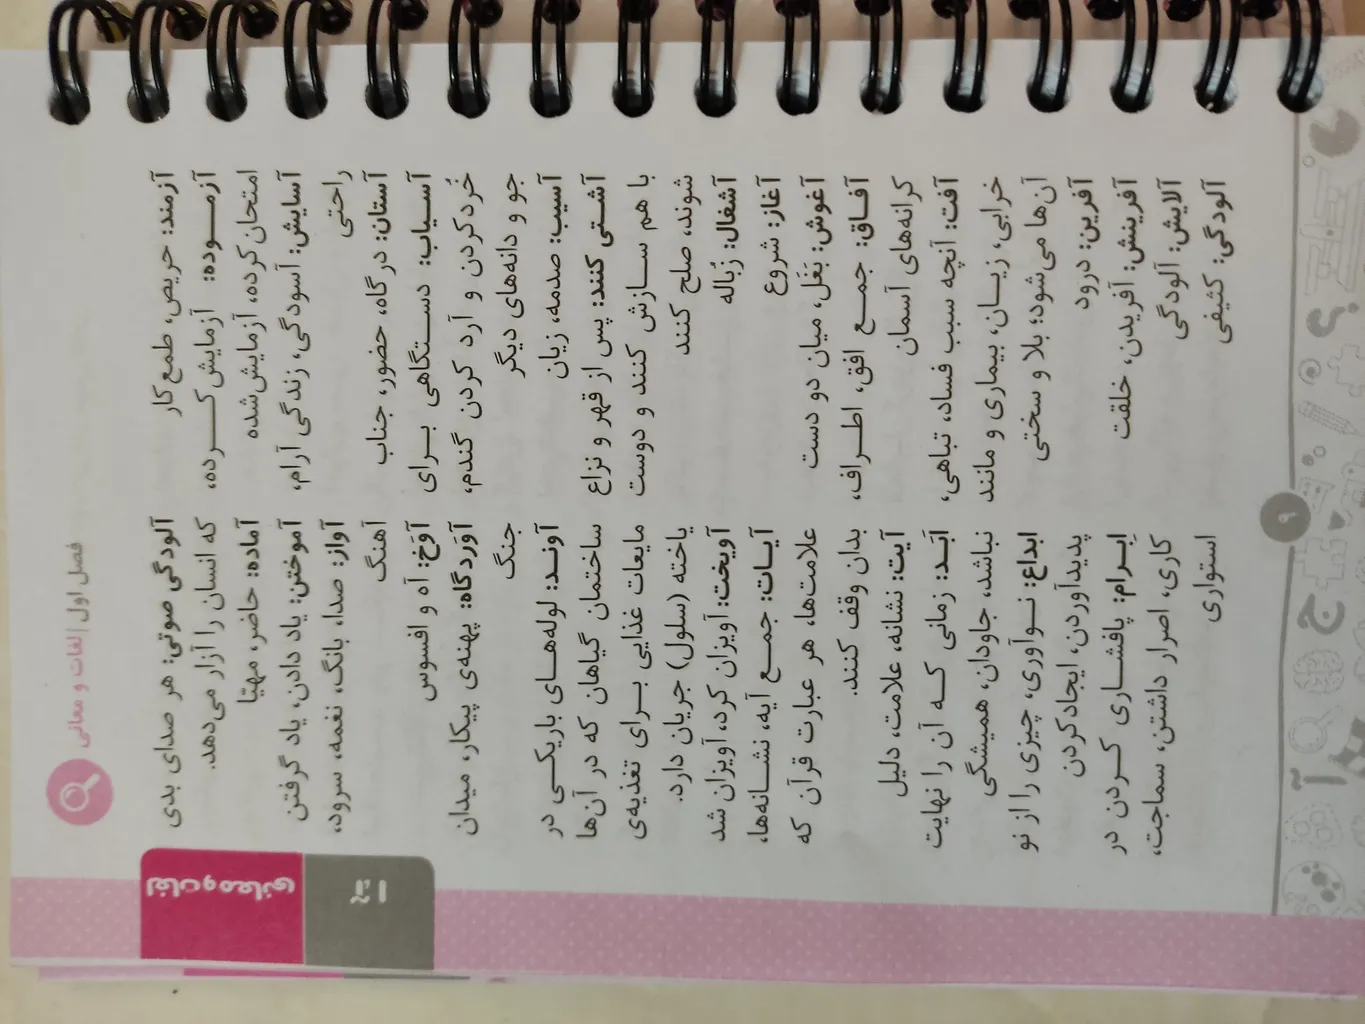 فصل اول | لغات و معانی
آزمند: حریص، طمع کار
آزمـــوده: آزمایش کـــرده،
امتحان کرده، آزمایش شده
آسایش: آسودگی، زندگی آرام،
راحتی
آستان: درگاه، حضور، جناب
آسیاب: دستـگاهی بـــرای
خُرد کردن و آرد کردن گندم،
جو و دانه‌های دیگر
آسیب: صدمه، زیان
آشتی کنند: پس از قهر و نزاع
با هم ســازش کنند و دوست
شوند، صلح کنند
آشغال: زُباله
آغاز: شروع
آغوش: بَغَل، میان دو دست
آفــاق: جمــع افق، اطــراف،
کرانه‌های آسمان
آفت: آنچه سبب فساد، تباهی،
خرابی، زیــان، بیماری و مانند
آن‌ها می‌شود؛ بلا و سختی
آفرین: درود
آفرینش: آفریدن، خلقت
آلایش: آلودگی
آلودگی: کثیفی
آلودگی صوتی: هر صدای بدی
که انسان را آزار می‌دهد.
آماده: حاضر، مهیّا
آموختن: یاد دادن، یاد گرفتن
آواز: صدا، بانگ، نغمه، سرود،
آهنگ
آوَخ: آه و افسوس
آوَردگاه: پهنه‌ی پیکار، میدان
جنگ
آونــد: لوله‌هــای باریکــی در
ساختمان گیاهان که در آن‌ها
مایعات غذایی بــرای تغذیه‌ی
یاخته (سلول) جریان دارد.
آویخت: آویزان کرد، آویزان شد
آیــات: جمــع آیه، نشــانه‌ها،
علامت‌ها، هر عبارت قرآن که
بدان وقف کنند.
آیت: نشانه، علامت، دلیل
ابَــد: زمانی کــه آن را نهایت
نباشد، جاودان، همیشگی
ابداع: نــوآوری، چیزی را از نو
پدیدآوردن، ایجاد کردن
اِبــرام: پافشــاری کــردن در
کاری، اصرار داشتن، سماجت،
استواری
لغات و معانی
آ تا ا
۹